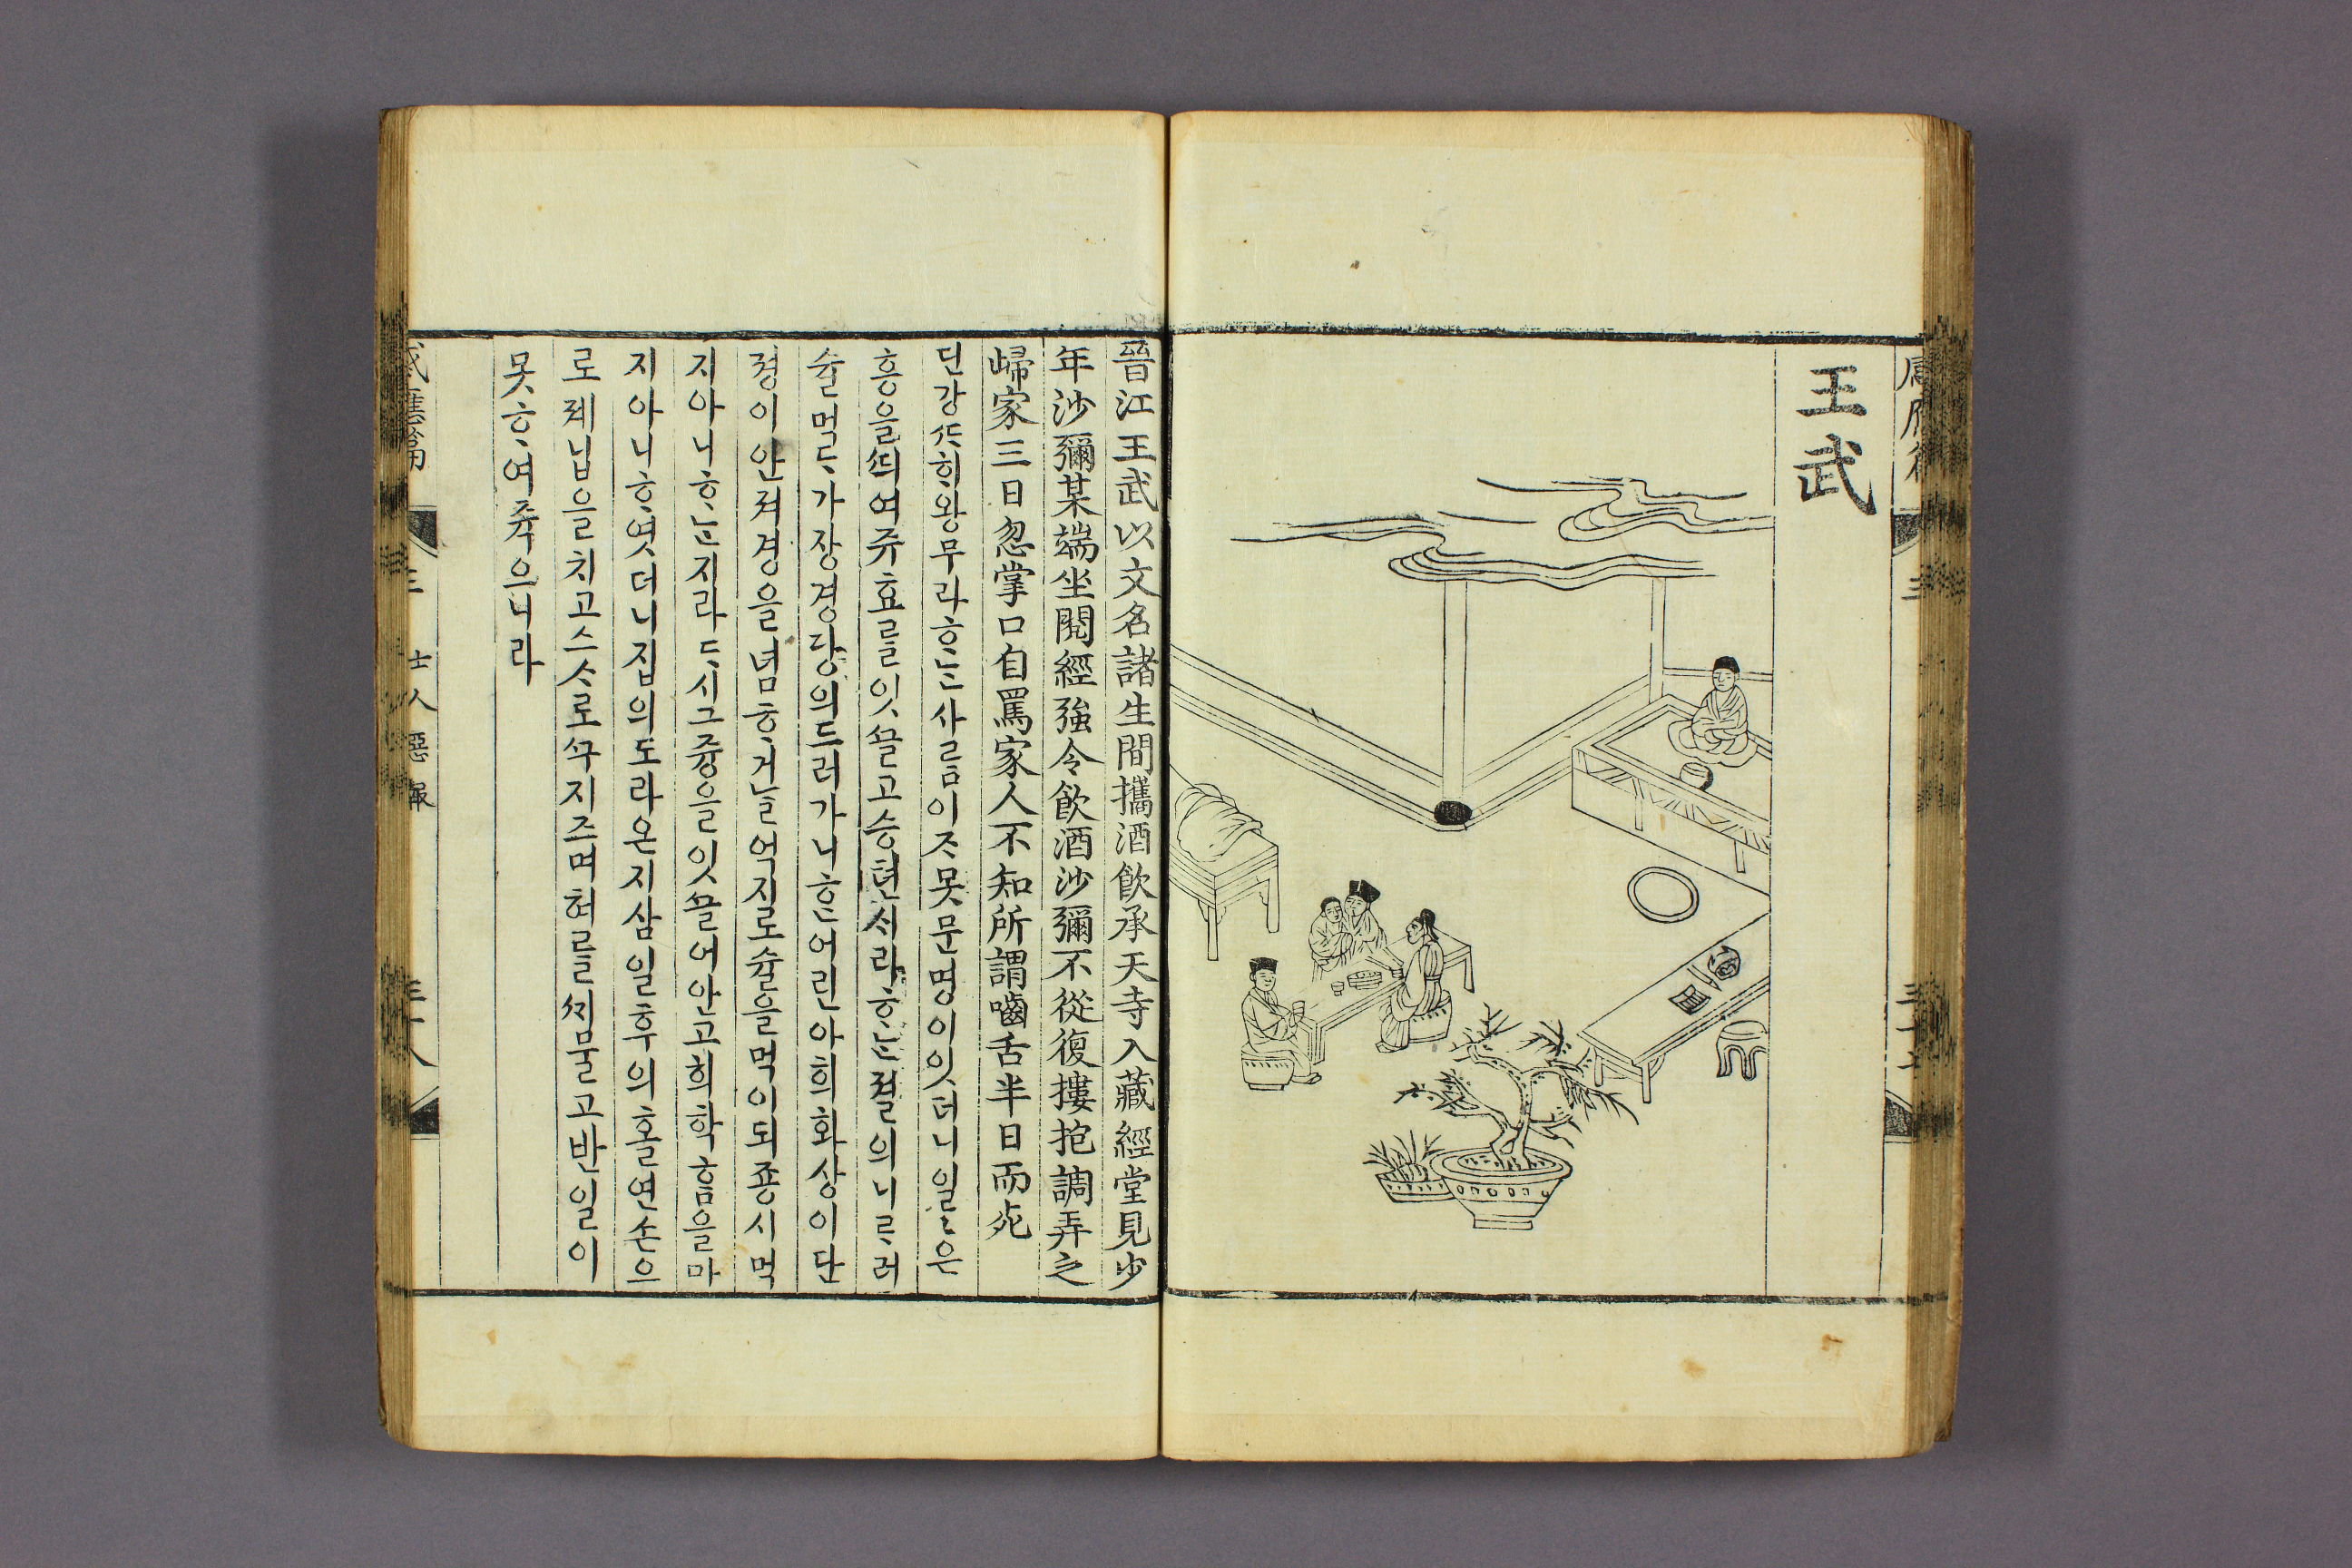 王武
晉江王武以文名諸生間攜酒飮承天寺入藏經堂見少
年沙彌某端坐閱經強令飮酒沙彌不從復摟抱調弄之
歸家三日忽掌口自罵家人不知所謂嚙舌半日而死
딘강ᄯᆞ희왕무라ᄒᆞᄂᆞᆫ사ᄅᆞᆷ이ᄌᆞ못문명이잇더니일〻은
흥을ᄯᅴ여쥬효를잇ᄭᅳᆯ고승텬시라ᄒᆞᄂᆞᆫ졀의니ᄅᆞ러
슐먹ᄃᆞ가쟝경당의드러가니ᄒᆞᆫ어린아희화상이단
졍이안져경을념ᄒᆞ거ᄂᆞᆯ억지로슐을먹이되죵시먹
지아니ᄒᆞᄂᆞᆫ지라ᄃᆞ시그즁을잇ᄭᅳᆯ어안고희학ᄒᆞᆷ을마
지아니ᄒᆞ엿더니집의도라온지삼일후의홀연손으
로졔닙을치고스ᄉᆞ로ᄭᅮ지즈며혀를ᄭᅴ물고반일이
못ᄒᆞ여쥭으니라
感應篇 三 士人惡報 三十八